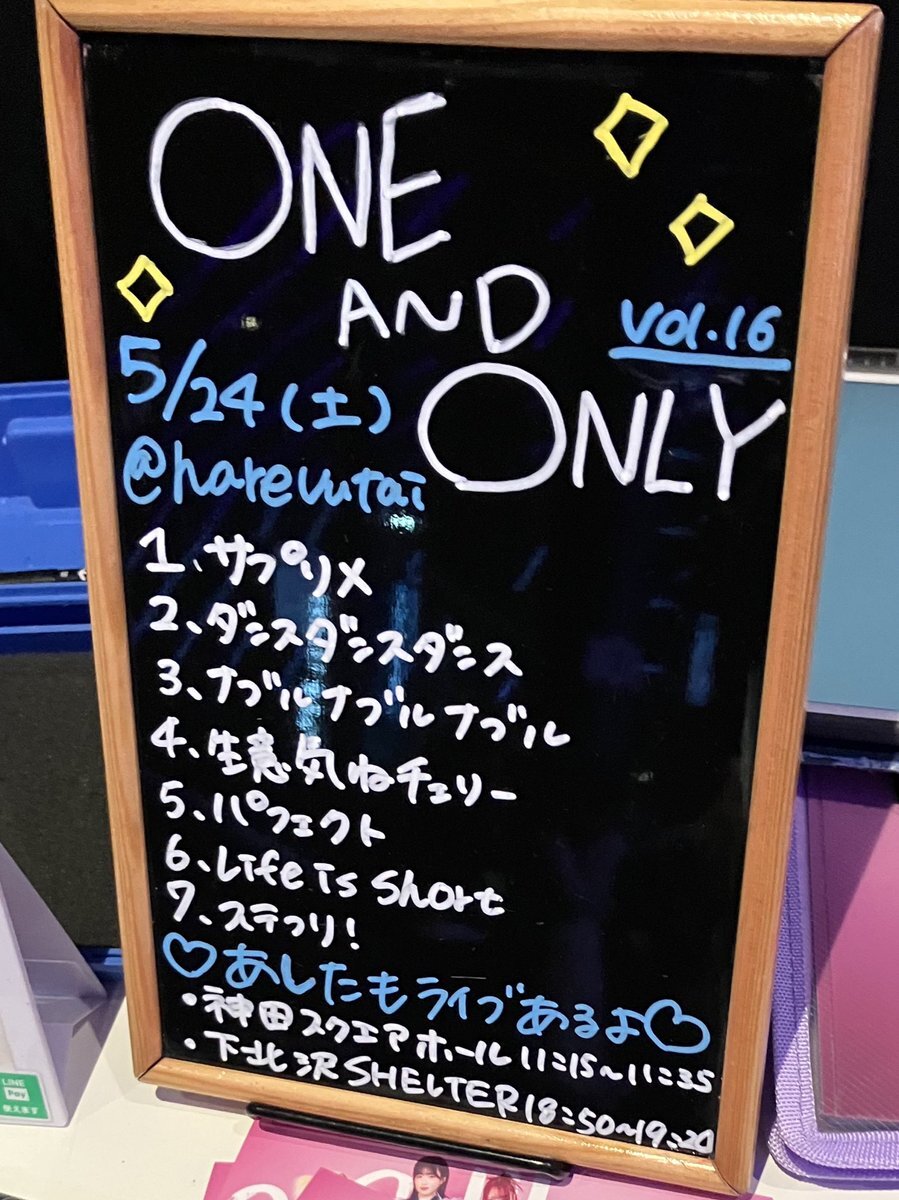 ONE
AND
ONLY
vol.16
5/24(土)
@harevutai
1、サプリメ
2、ダンスダンスダンス
3、ナブルナブルナブル
4、生意気ねチェリー
5、パフェクト
6、Life is Short
7、ステっリ!
♡あしたもライブあるよ♡
・神田スクエアホール11:15~11:35
・下北沢SHELTER18:50~19:20
LINE
Pay
使えます